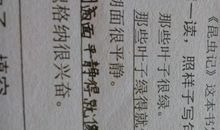 《昆虫记》这本书
一读，照样子写
那些叶子很绿。
那些叶子绿得就
湖面很平静。
湖面平静得就像
格纳很兴奋。